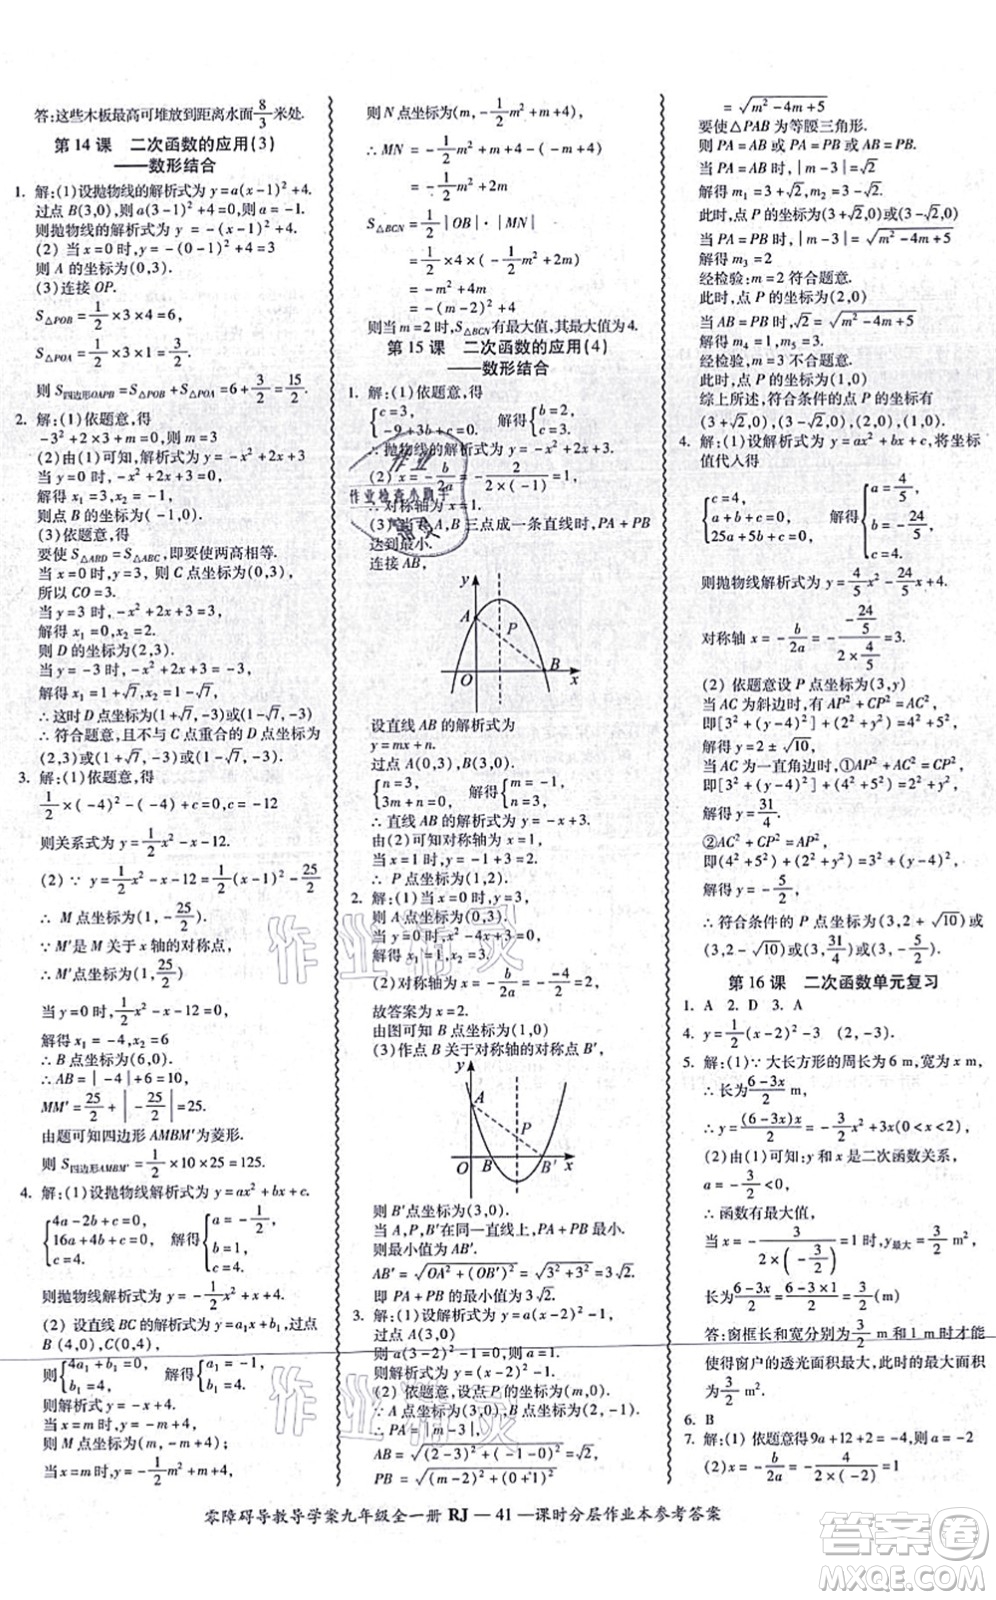 答:这些木板最高可堆放到距离水面8/3米处.
第 14 课 二次函数的应用(3)
——数形结合
1. 解:(1)设抛物线的解析式为 y=a(x-1)²+4.
过点 B(3,0),则a(3-1)²+4,则 a=-1.
则抛物线的解析式为 y=-(x-1)²+4.
(2) 当 x=0 时,y=-(0-1)²+4=3
则 A 的坐标为(0,3).
(3)连接 OP.
S△POB=1/2×3×4=6,
S△POA=1/2×3×1=3/2,
则 S四边形OAPB=S△POB+S△POA=6+3/2=15/2
2. 解:(1)依题意,得
-3²+2×3+m=0,则 m=3
(2)由(1)可知,解析式为 y=-x²+2x+3
当 y=0 时,-x²+2x+3=0
解得 x₁=3,x₂=-1
则点 B 的坐标为(-1,0).
(3)依题意,得
要使 S△ABD=S△ABC,即要使两高相等.
当 x=0 时,y=3,则 C 点坐标为(0,3),
所以 CO=3.
当 y=3 时,-x²+2x+3=3.
解得 x₁=0,x₂=2.
则 D 点坐标为(2,3).
当 y=-3 时,-x²+2x+3=-3.
解得 x₁=1+√7,x₂=1-√7,
∴这时 D 点坐标为(1+√7,-3)或(1-√7,-3)
∴符合题意,且不与 C 点重合的 D 点坐标为
(2,3)或(1+√7,-3)或(1-√7,-3)
3. 解:(1)依题意,得
1/2×(-4)²-(-4)+c=0,则 c=-12
则关系式为 y=1/2x²-x-12.
(2) ∵ y=1/2x²-x-12=1/2(x-1)²-25/2
∴ M 点坐标为(1,-25/2).
∵M′是 M 关于 x 轴的对称点,
∴M′点坐标为(1,25/2)
当 y=0 时,1/2x²-x-12=0,
解得 x₁=-4,x₂=6
∴B 点坐标为(6,0).
∴AB=|-4|+6=10.
MM′=25/2+|-25/2|=25.
由题可知四边形 AMBM′为菱形.
则 S四边形AMBM′=1/2×10×25=125.
4. 解:(1)设抛物线解析式为 y=ax²+bx+c.
{4a-2b+c=0, 16a+4b+c=0, c=4. 解得{a=-1/2, b=1, c=4.
则抛物线解析式为 y=-1/2x²+x+4
(2) 设直线 BC 的解析式为 y=a₁x+b₁,过点
B (4,0),C(0,4)
则{4a₁+b₁=0, b₁=4 解得{a₁=-1, b₁=4.
则解析式为 y=-x+4
当 x=m 时,y=-m+4
则 M 点坐标为(m,-m+4);
当 x=m 时,y=-1/2m²+m+4
则 N 点坐标为(m,-1/2m²+m+4)
∴MN=-1/2m²+m+4-(-m+4)
=-1/2m²+2m
S△BCN=1/2|OB|·|MN|
=1/2×4×(-1/2m²+2m)
=-m²+4m
=-(m-2)²+4
则当 m=2 时,S△BCN有最大值,其最大值为 4.
第 15 课 二次函数的应用(4)
——数形结合
1. 解:(1)依题意,得
{c=3, -9+3b+c=0 解得{b=2, c=3.
∴抛物线的解析式为 y=-x²+2x+3
(2)x=-b/2a=-2/(2×(-1))=1
∴对称轴为 x=1
A,B 三点成一条直线时,PA+PB
达到最小.
连接 AB,
y
A
P
O
B
x
设直线 AB 的解析式为
y=mx+n.
过点 A(0,3),B(3,0).
{n=3, 3m+n=0, 解得{m=-1, n=3.
∴直线 AB 的解析式为 y=-x+3
由(2)可知对称轴为 x=1
当 x=1 时,y=-1+3=2.
∴P 点坐标为(1,2).
2. 解:(1)当 x=0 时,y=3,
则 A 点坐标为(0,3).
当 y=0 时,x²-4x+3=0
解得x₁=1,x₂=3.
(2)对称轴为 x=-b/2a=-(-4)/2=2
故答案为 x=2
由图可知 B 点坐标为(1,0)
(3)作点 B 关于对称轴的对称点 B′,
y
A
P
O
B
B′
x
则 B′点坐标为(3,0).
当 A,P,B′在同一直线上时,PA+PB 最小.
则最小值为 AB′.
AB′=√(OA²+(OB′)²)=√(3²+3²)=3√2.
即 PA+PB 的最小值为 3√2.
3. 解:(1)设解析式为 y=a(x-2)²-1,
过点 A(3,0)
则 a(3-2)²-1=0,则 a=1.
则解析式为 y=(x-2)²-1
(2) 依题意,设点 P 的坐标为(m,0)
∴PA=|m-3|
AB=√((2-3)²+(-1-0)²)=√2
PB=√((m-2)²+(0+1)²)
=√(m²-4m+5)
要使△PAB 为等腰三角形.
则 PA=AB 或 PA=PB
当 PA=AB 时,|m-3|=√2
解得 m₁=3+√2,m₂=3-√2.
此时,点 P 的坐标为(3+√2,0)或(3-√2,0)
当 PA=PB 时,|m-3|=√(m²-4m+5)
解得 m₃=2
经检验:m=2 符合题意.
此时,点 P 的坐标为(2,0)
当 AB=PB 时,√2=√(m²-4m+5)
解得 m₄=1,m₅=3.
经检验,m=1 符合题意.
此时,点 P 的坐标为(1,0)
综上所述,符合条件的点 P 的坐标为
(3+√2,0)或(3-√2,0)或(2,0)或(1,0).
4. 解:(1)设解析式为 y=ax²+bx+c,将坐标
值代入得
{c=4, a+b+c=0, 25a+5b+c=0 解得{a=4/5, b=-24/5, c=4.
则抛物线解析式为 y=4/5x²-24/5x+4.
对称轴 x=-b/2a=-(-24/5)/(2×4/5)=3.
(2) 依题意设 P 点坐标为(3,y)
当 AC 为斜边时,有 AP²+CP²=AC²
即[3²+(y-4)²]+(2²+y²)=4²+5²,
解得 y=2±√10,
当 AC 为一直角边时,①AP²=AC²+CP²,
即[3²+(y-4)²]=(2²+y²)+(4²+5²)
解得 y=31/4.
②AC²+AP²=CP²,
即(4²+5²)+[3²+(y-4)²]=(2²+y²)
∴符合条件的 P 点坐标为(3,2+√10)或
(3,2-√10)或(3,31/4)或(3,
第 16 课 二次函数单元复习
1. A 2. D 3. A
4. y=1/2(x-2)²-3 (2,-3).
5. 解:(1)∵大长方形的周长为 6 m,宽为 x m,
∴长为(6-3x)/2 m.
∴y=(6-3x)x/2=-3/2x²+3x(0<x<2)
(2)由(1)可知,y 与 x 是二次函数关系,
a=-3/2<0
∴函数有最大值,
当 x=-3/(2×(-3/2))=1 时,y最大=3/2 m²,
长为(6-3x)/2=(6-3×1)/2=3/2(m)
答:窗框长和宽分别为3/2 m 和 1 m 时才能
使得窗户的透光面积最大,最大面积
为3/2 m².
6. B
7. 解:(1) 依题意得9a+12+2=5
(2)
零障碍导教导学案九年级全一册 RJ — 41 —课时分层作业本参考答案
作业检查小助手
作业精灵
作业精灵
答案圈
MXQE.COM